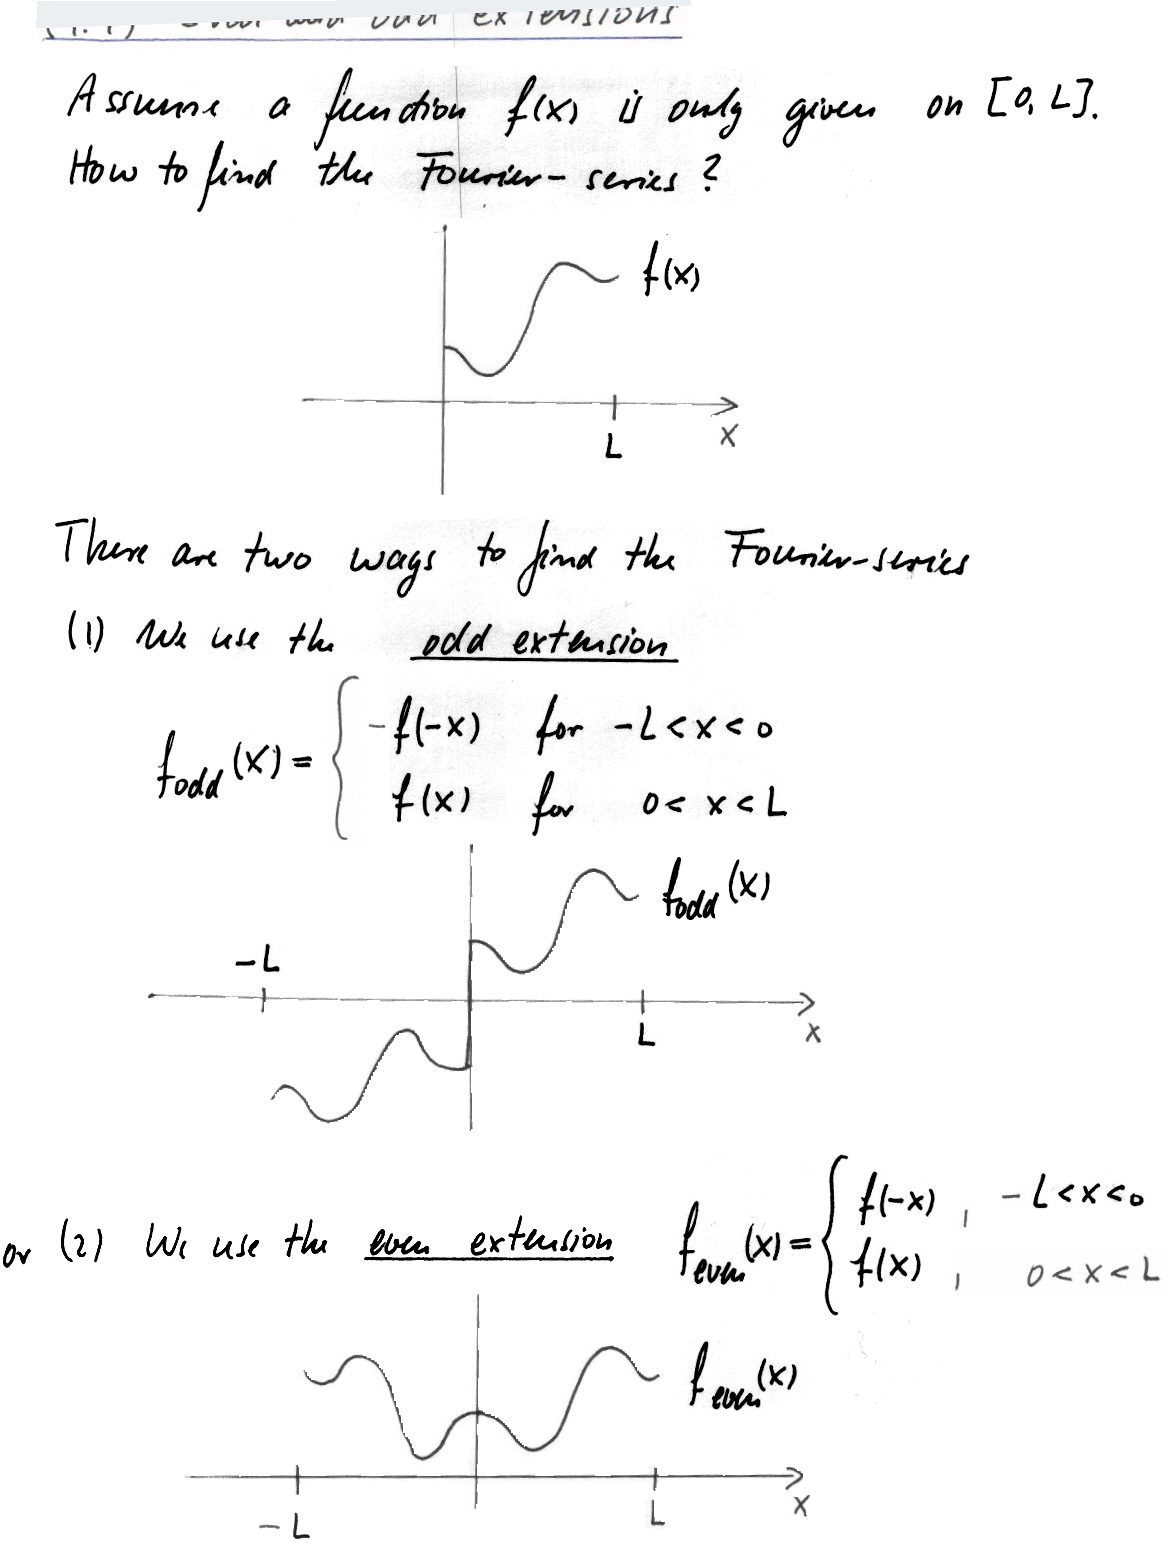 extensions
Assume a function f(x) is only given on [0, L].
How to find the Fourier-series?
f(x)
L
x
There are two ways to find the Fourier-series
(1) We use the odd extension
f_odd(x) = { -f(-x) for -L<x<0
f(x) for 0<x<L
f_odd(x)
-L
L
x
or (2) We use the even extension f_even(x) = { f(-x), -L<x<0
f(x), 0<x<L
f_even(x)
-L
L
x